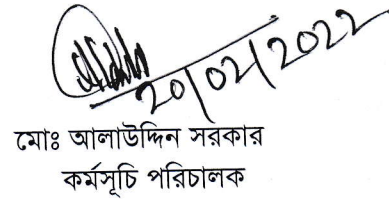 20/02/2022
মোঃ আলাউদ্দিন সরকার
কর্মসূচি পরিচালক